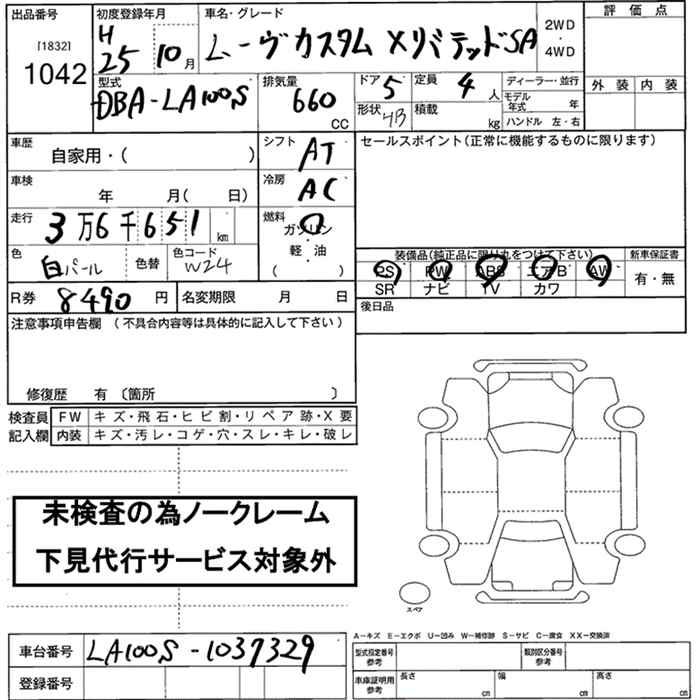 出品番号
[1832]
1042
初度登録年月
H
25 10月
車名・グレード
ムーヴカスタム Xリミテッド SA
2WD
・
4WD
評価点
外装 内装
型式
DBA-LA100S
排気量
660
CC
ドア 5
形状 HB
定員 4人
積載 kg
ディーラー・並行
モデル年式 年
ハンドル 左・右
車歴
自家用・( )
シフト
AT
セールスポイント(正常に機能するものに限ります)
車検
年 月( 日)
冷房
AC
走行
3万6千651km
燃料
ガソリン
軽・油
( )
色
白パール
色替
色コード
W24
装備品(純正品に限り丸をつけて下さい)
新車保証書
PS PW ABS エアB AW
SR ナビ TV カワ
有・無
R券
8490円
名変期限 月 日
後日品
注意事項申告欄(不具合内容等は具体的に記入して下さい)
修復歴 有〔箇所 〕
検査員
記入欄
FW キズ・飛石・ヒビ割・リペア跡・X要
内装 キズ・汚レ・コゲ・穴・スレ・キレ・破レ
未検査の為ノークレーム
下見代行サービス対象外
スペア
A－キズ E－エクボ U－凹み W－補修跡 S－サビ C－腐食 XX－交換済
車台番号
LA100S-1037329
登録番号
型式指定番号
参考
類別区分番号
参考
車庫証明用
参考
長さ cm
幅 cm
高さ cm